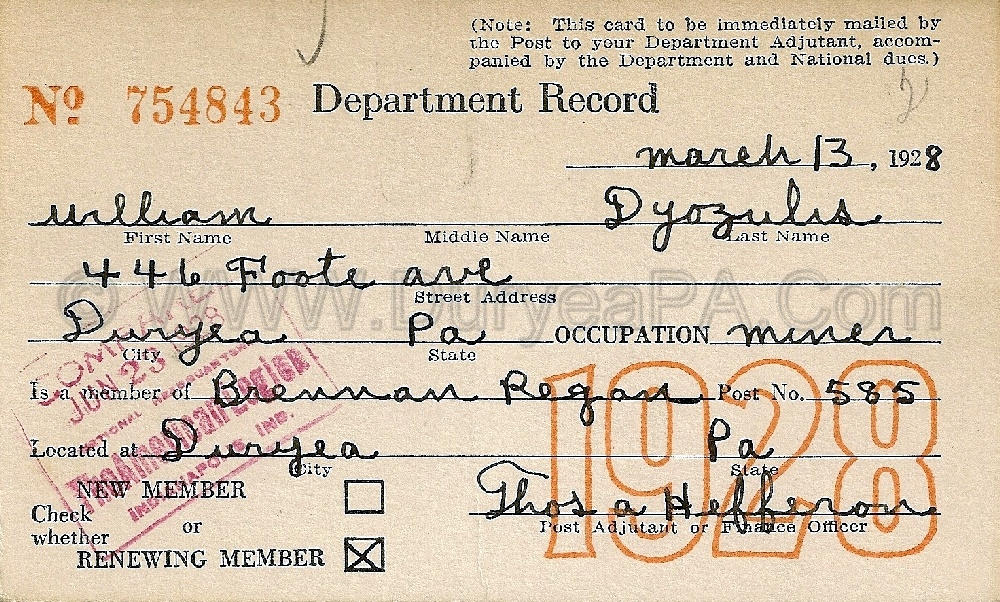 (Note: This card to be immediately mailed by
the Post to your Department Adjutant, accom-
panied by the Department and National dues.)
No 754843 Department Record
March 13, 1928
William Dyozulis
First Name Middle Name Last Name
446 Foote ave
Street Address
© WWW.DuryeaPA.Com
Duryea Pa OCCUPATION miner
City State
COMPARED
JUN 23 1928
NATIONAL HEADQUARTERS
The American Legion
INDIANAPOLIS, IND.
Is a member of Brennan Regan Post No. 585
Located at Duryea Pa
City State
1928
NEW MEMBER
Check
whether or
RENEWING MEMBER
Thos a Hefferon
Post Adjutant or Finance Officer